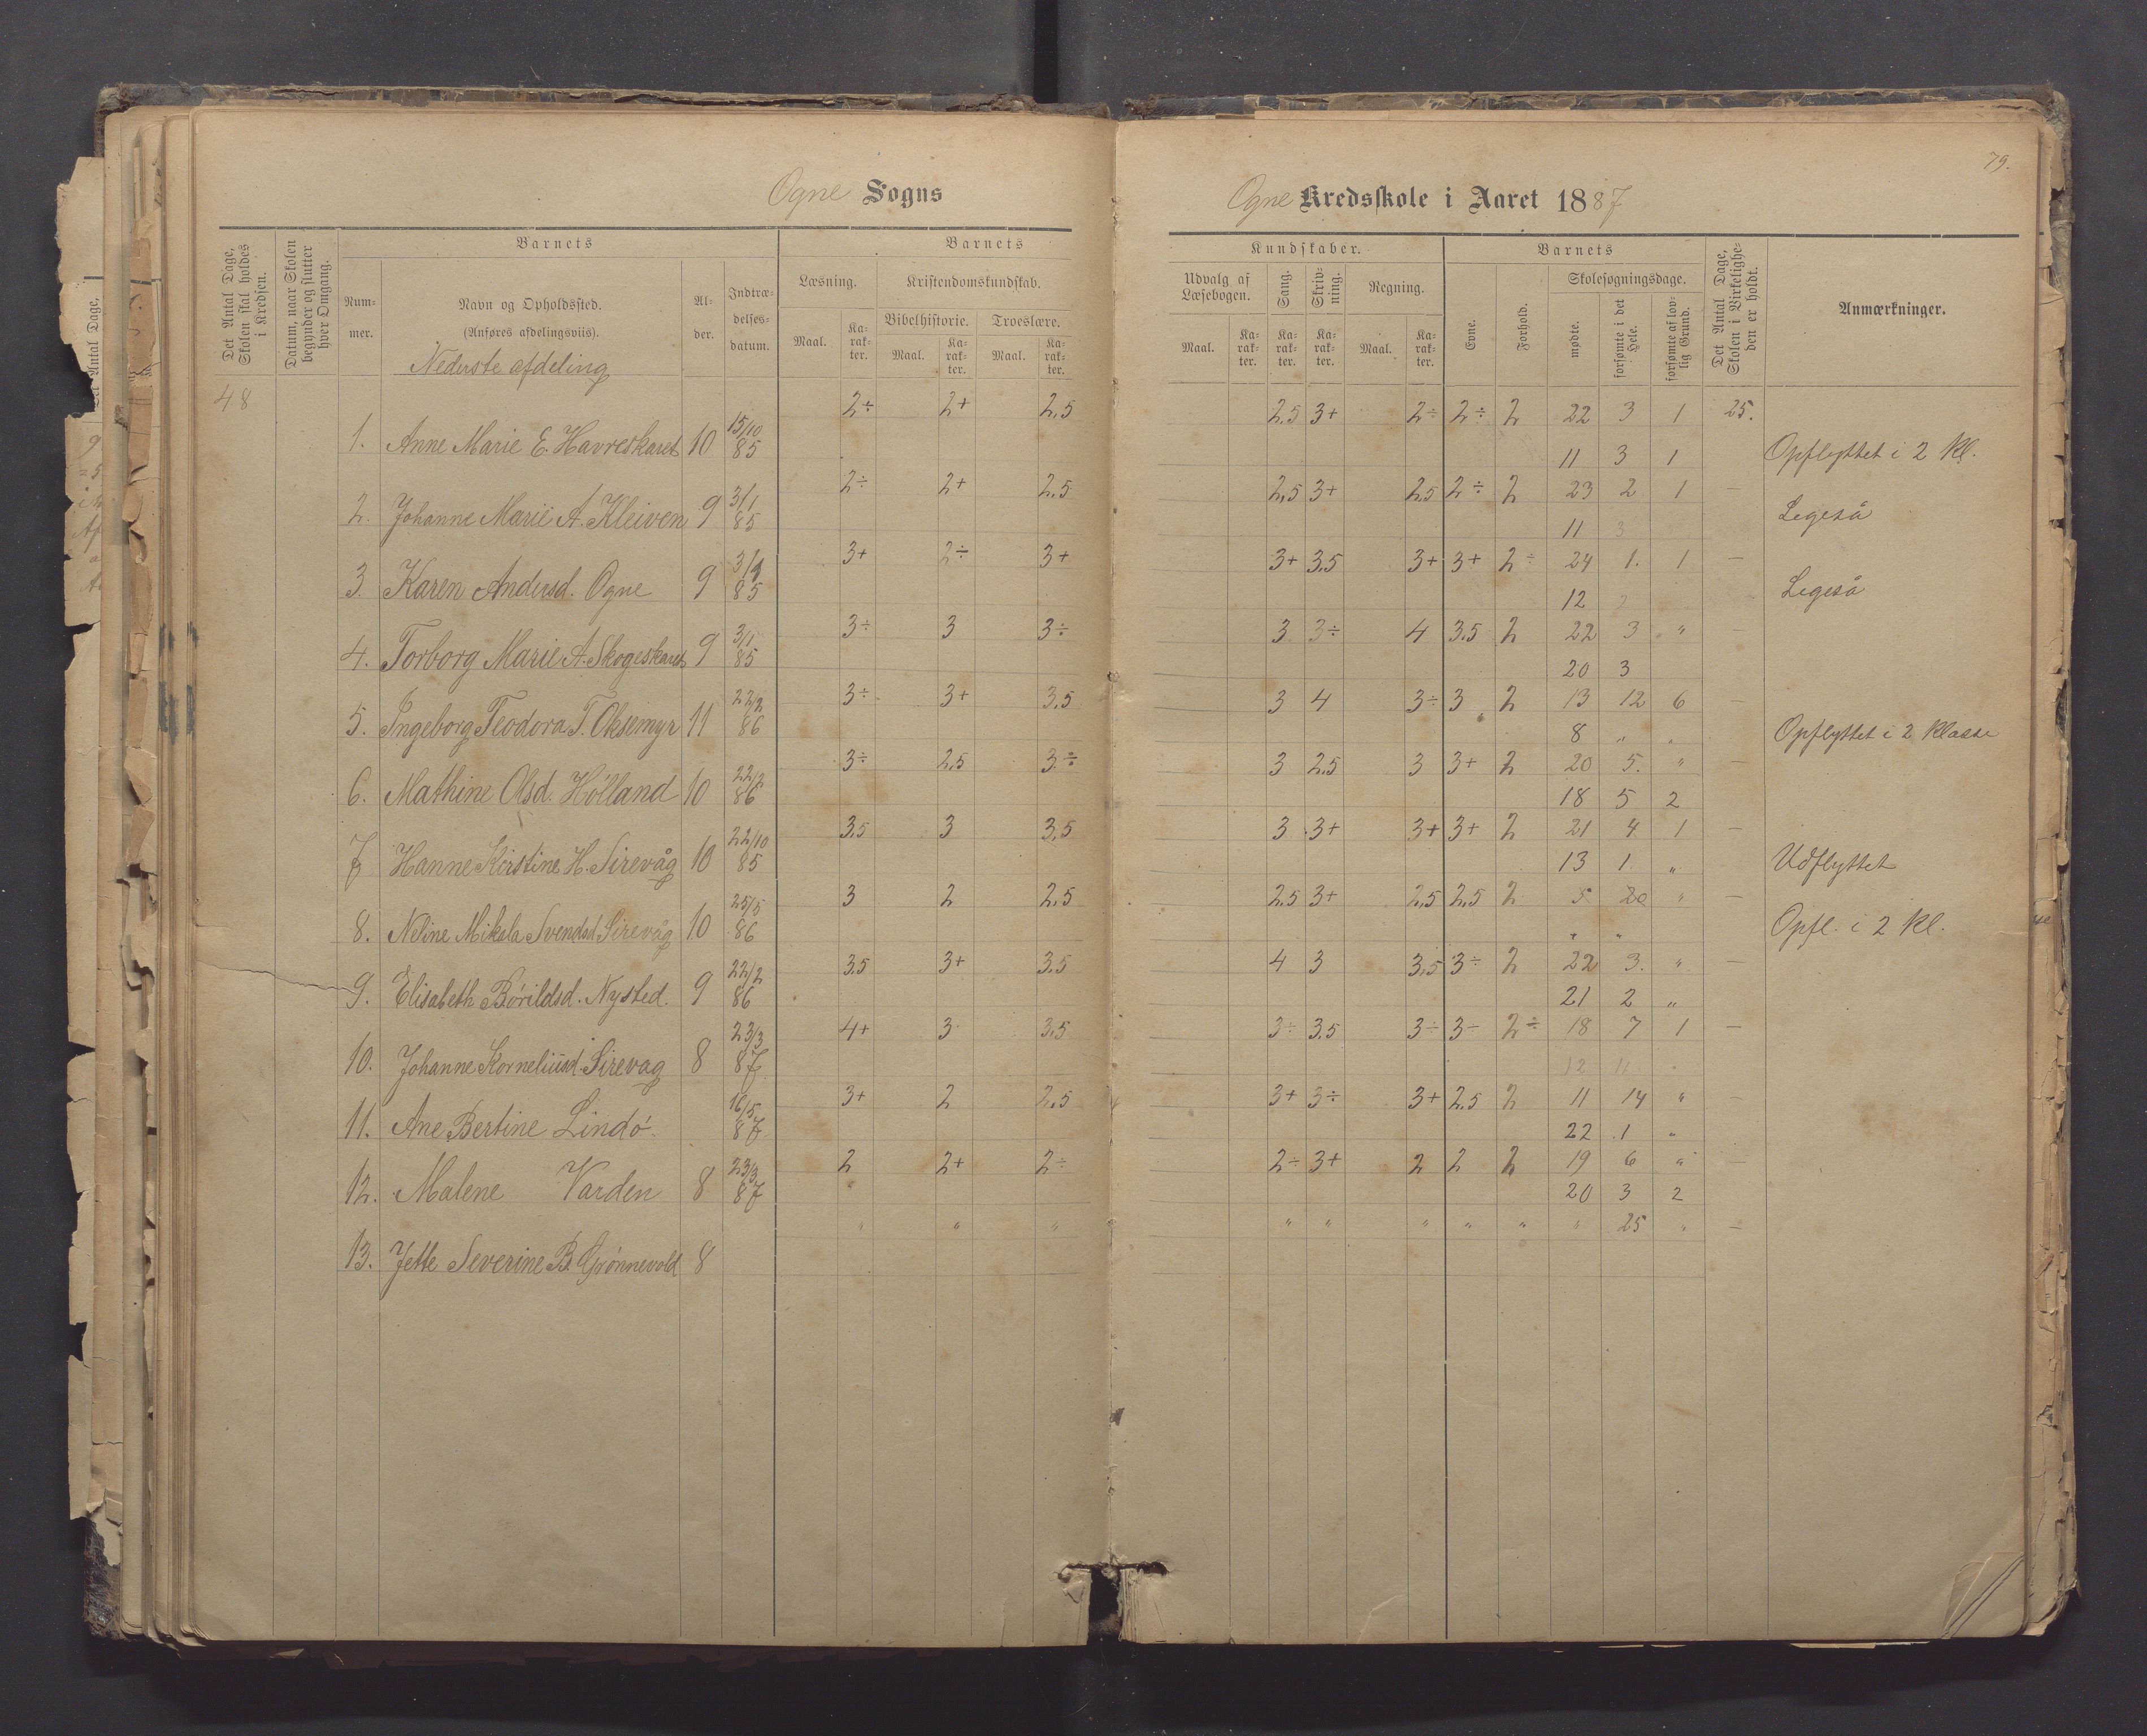 79.
Ogne Sogns
Ogne Kredsskole i Aaret 1887
Det Antal Dage, Skolen skal holdes i Kredsen.
Datum, naar Skolen begynder og slutter hver Omgang.
Barnets
Barnets
Num-mer.
Navn og Opholdssted.
(Anføres afdelingsviis).
Nederste afdeling
Al-der.
Indtræ-delses-datum.
Læsning.
Kristendomskundskab.
Bibelhistorie.
Troeslære.
Maal.
Ka-rak-ter.
Maal.
Ka-rak-ter.
Maal.
Ka-rak-ter.
Kundskaber.
Barnets
Udvalg af Læsebogen.
Sang.
Skriv-ning.
Regning.
Maal.
Ka-rak-ter.
Ka-rak-ter.
Ka-rak-ter.
Maal.
Ka-rak-ter.
Evne.
Forhold.
Skolesøgningsdage.
mødte.
forsømte i det Hele.
forsømte af lov-lig Grund.
Det Antal Dage, Skolen i Virkelighe-den er holdt.
Anmærkninger.
48
2÷ 2+ 2,5 2,5 3+ 2÷ 2÷ 2 22 3 1 25.
1. Anne Marie E. Havreskaret 10 15/10 85 11 3 1 Opflyttet i 2 Kl.
2÷ 2+ 2,5 2,5 3+ 2,5 2÷ 2 23 2 1 —
2. Johanne Marie A. Kleiven 9 3/1 85 11 3 Legeså
3+ 2÷ 3+ 3+ 3,5 3+ 3+ 2÷ 24 1. 1 —
3. Karen Andersd. Ogne 9 3/1 85 12 Legeså
3÷ 3 3÷ 3 3÷ 4 3,5 2 22 3 " —
4. Torborg Marie A. Skogeskaret 9 3/1 85 20 3
3÷ 3+ 3,5 3 4 3÷ 3 2 13 12 6 —
5. Ingeborg Teodora T. Oksemyr 11 22/2 86 8 " " Opflyttet i 2 Klasse
3÷ 2,5 3÷ 3 2,5 3 3+ 2 20 5. " —
6. Mathine Olsd. Hölland 10 22/2 86 18 5 2
3,5 3 3,5 3 3+ 3+ 3+ 2 21 4 1 —
7 Hanne Kirstine H. Sirevåg 10 22/10 85 13 1 " Udflyttet
3 2 2,5 2,5 3+ 2,5 2,5 2 5 20 " —
8. Neline Mikala Svendsd. Sirevåg 10 25/5 86 " " Opfl. i 2 Kl.
3,5 3+ 3,5 4 3 3,5 3÷ 2 22 3. " —
9. Elisabeth Börildsd. Nysted. 9 22/2 86 21 2 "
4+ 3 3,5 3÷ 3,5 3÷ 3÷ 2÷ 18 7 1 —
10. Johanne Korneliusd. Sirevag 8 23/3 87 12 11
3+ 2 2,5 3+ 3÷ 3+ 2,5 2 11 14 " —
11. Ane Bertine Lindö. 16/5 87 22 1 "
2 2+ 2÷ 2÷ 3+ 2 2 2 19 6 " —
12. Malene Varden 8 23/3 87 20 3 2
" " " " " " " " " 25 " —
13. Jette Severine B. Grönnevold 8